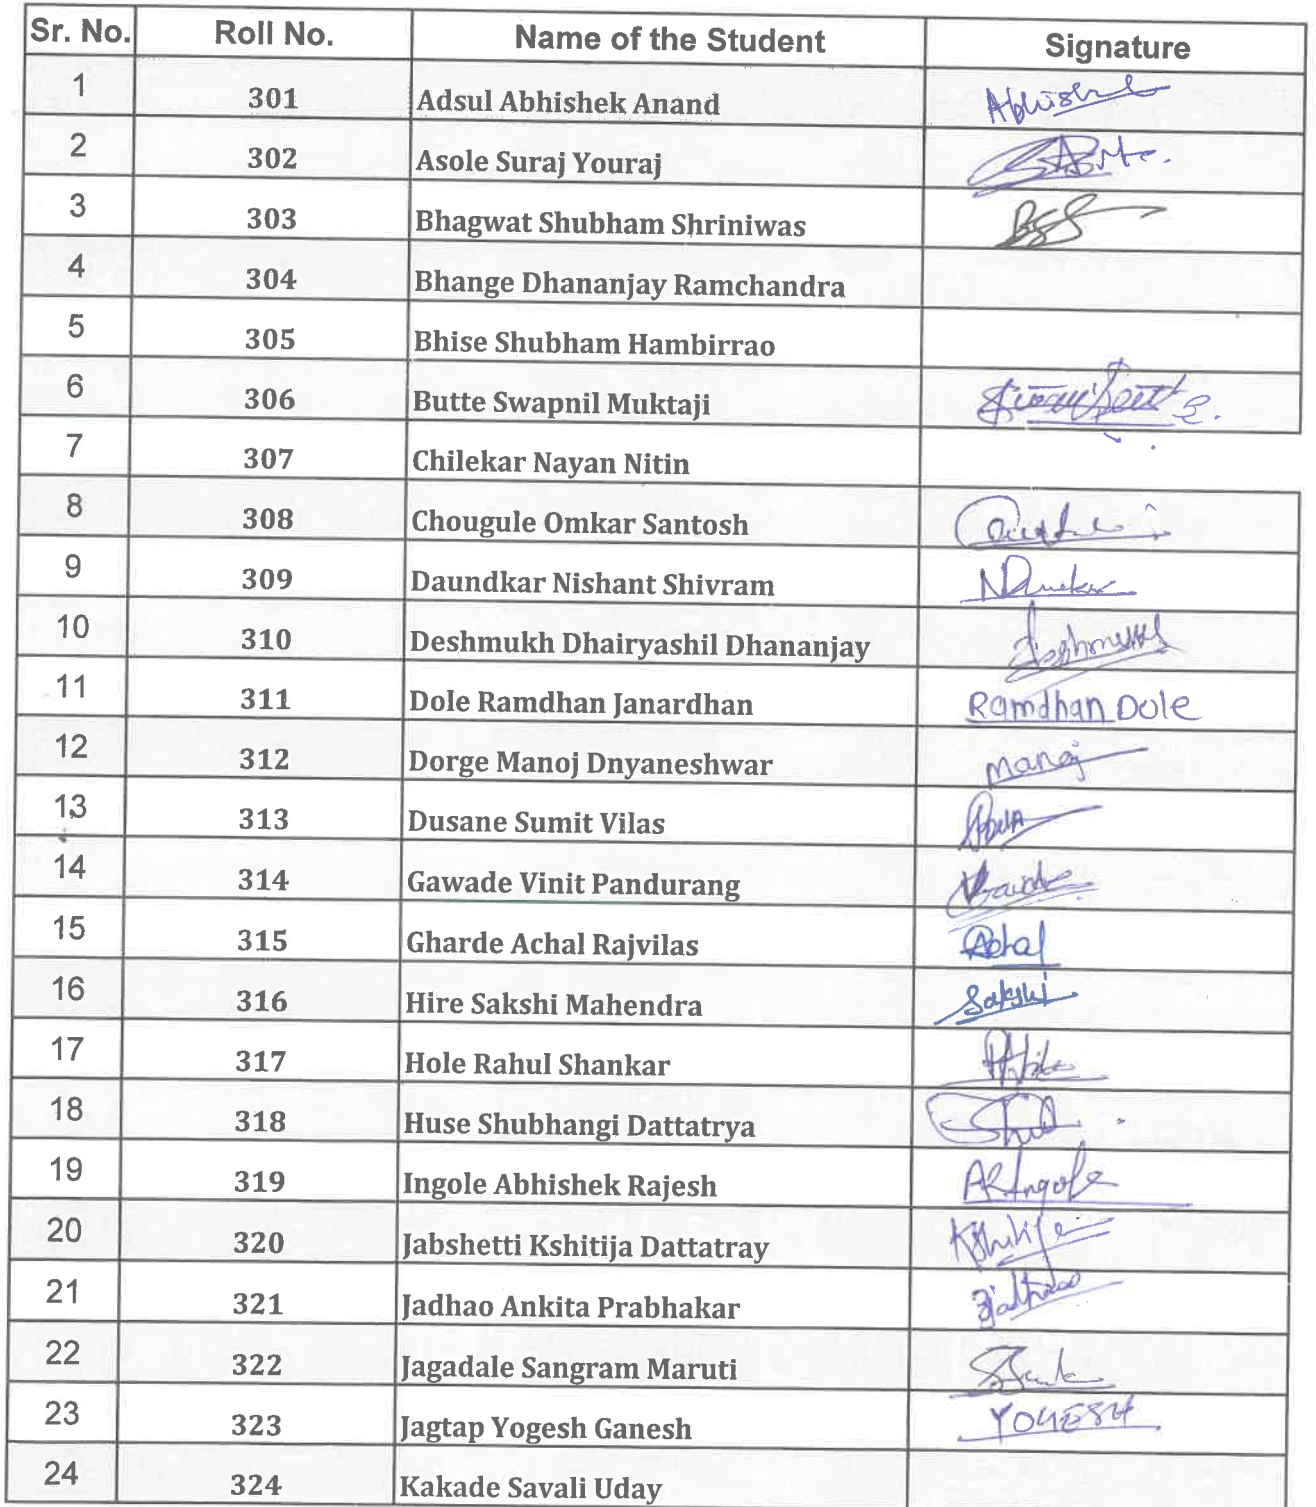 Sr. No. Roll No. Name of the Student Signature
1 301 Adsul Abhishek Anand Abhishek
2 302 Asole Suraj Youraj
3 303 Bhagwat Shubham Shriniwas
4 304 Bhange Dhananjay Ramchandra
5 305 Bhise Shubham Hambirrao
6 306 Butte Swapnil Muktaji
7 307 Chilekar Nayan Nitin
8 308 Chougule Omkar Santosh
9 309 Daundkar Nishant Shivram
10 310 Deshmukh Dhairyashil Dhananjay
11 311 Dole Ramdhan Janardhan Ramdhan Dole
12 312 Dorge Manoj Dnyaneshwar Manoj
13 313 Dusane Sumit Vilas
14 314 Gawade Vinit Pandurang
15 315 Gharde Achal Rajvilas Achal
16 316 Hire Sakshi Mahendra Sakshi
17 317 Hole Rahul Shankar
18 318 Huse Shubhangi Dattatrya
19 319 Ingole Abhishek Rajesh ARIngole
20 320 Jabshetti Kshitija Dattatray Kshitija
21 321 Jadhao Ankita Prabhakar
22 322 Jagadale Sangram Maruti
23 323 Jagtap Yogesh Ganesh YOGESH
24 324 Kakade Savali Uday